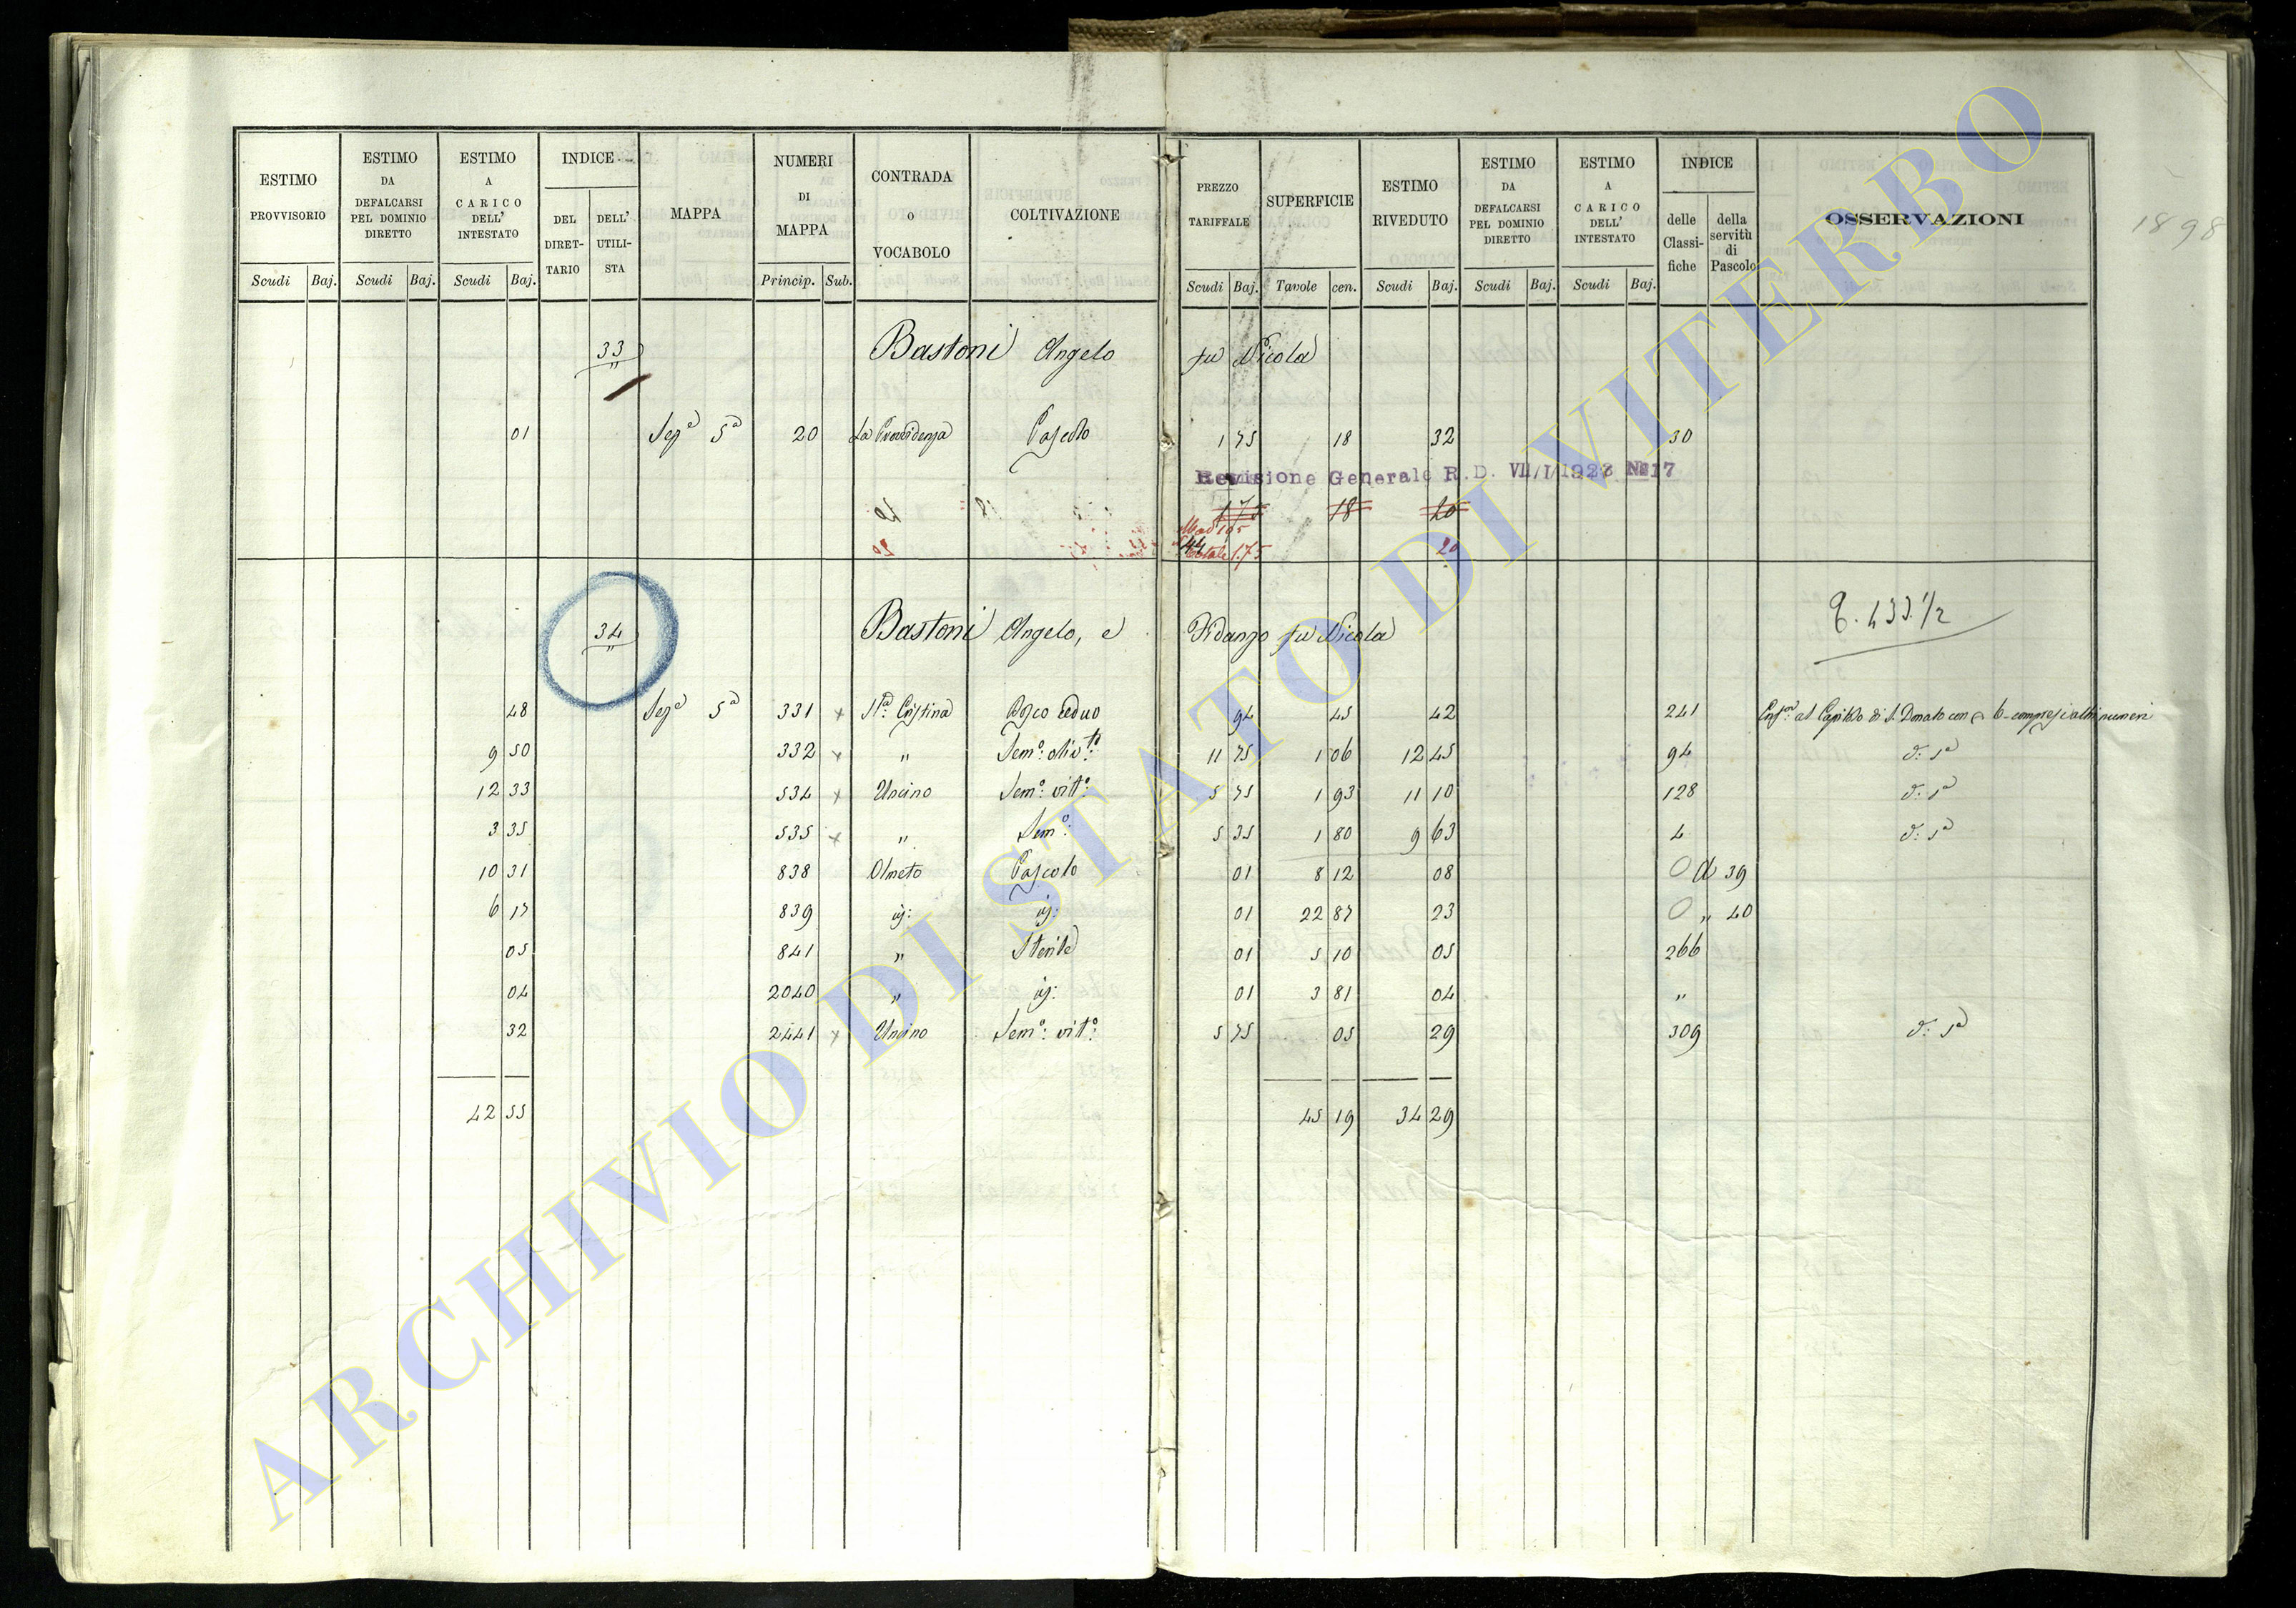 1898
ESTIMO PROVVISORIO Scudi Baj.
ESTIMO DA DEFALCARSI PEL DOMINIO DIRETTO Scudi Baj.
ESTIMO A CARICO DELL' INTESTATO Scudi Baj.
INDICE DEL DIRET- TARIO DELL' UTILI- STA
MAPPA
NUMERI DI MAPPA Princip. Sub.
CONTRADA O VOCABOLO
COLTIVAZIONE
PREZZO TARIFFALE Scudi Baj.
SUPERFICIE Tavole cen.
ESTIMO RIVEDUTO Scudi Baj.
ESTIMO DA DEFALCARSI PEL DOMINIO DIRETTO Scudi Baj.
ESTIMO A CARICO DELL' INTESTATO Scudi Baj.
INDICE delle Classi- fiche della servitù di Pascolo
OSSERVAZIONI
33 Bastoni Angelo fu Nicola
01 Sez.e 5a 20 La Provvidenza Pascolo 1 75 18 32 30
Revisione Generale R.D. VII/I/1923 No 17
1 75 18 20
Totale 1.75 20
34 Bastoni Angelo, e Fidanzo fu Nicola
48 Sez.e 5a 331 x Sta: Cristina Bosco ceduo 94 45 42 241 Enf.ci al Capitolo di S. Donato con 6 compresi altri numeri
9 50 332 x " Sem.o: oliv.to 11 75 1 06 12 45 94 d: sa
12 33 534 x Uncino Sem.o: vit.o: 5 75 1 93 11 10 128 d: sa
3 35 535 x " Sem.o: 5 35 1 80 9 63 4 d: sa
10 31 838 Olmeto Pascolo 01 8 12 08 0 A 39
6 17 839 id: id: 01 22 87 23 0 " 40
05 841 " Sterile 01 5 10 05 266
04 2040 " id: 01 3 81 04 "
32 2441 x Uncino Sem.o: vit.o: 5 75 05 29 309 d: sa
42 55 45 19 34 29
ARCHIVIO DI STATO DI VITERBO